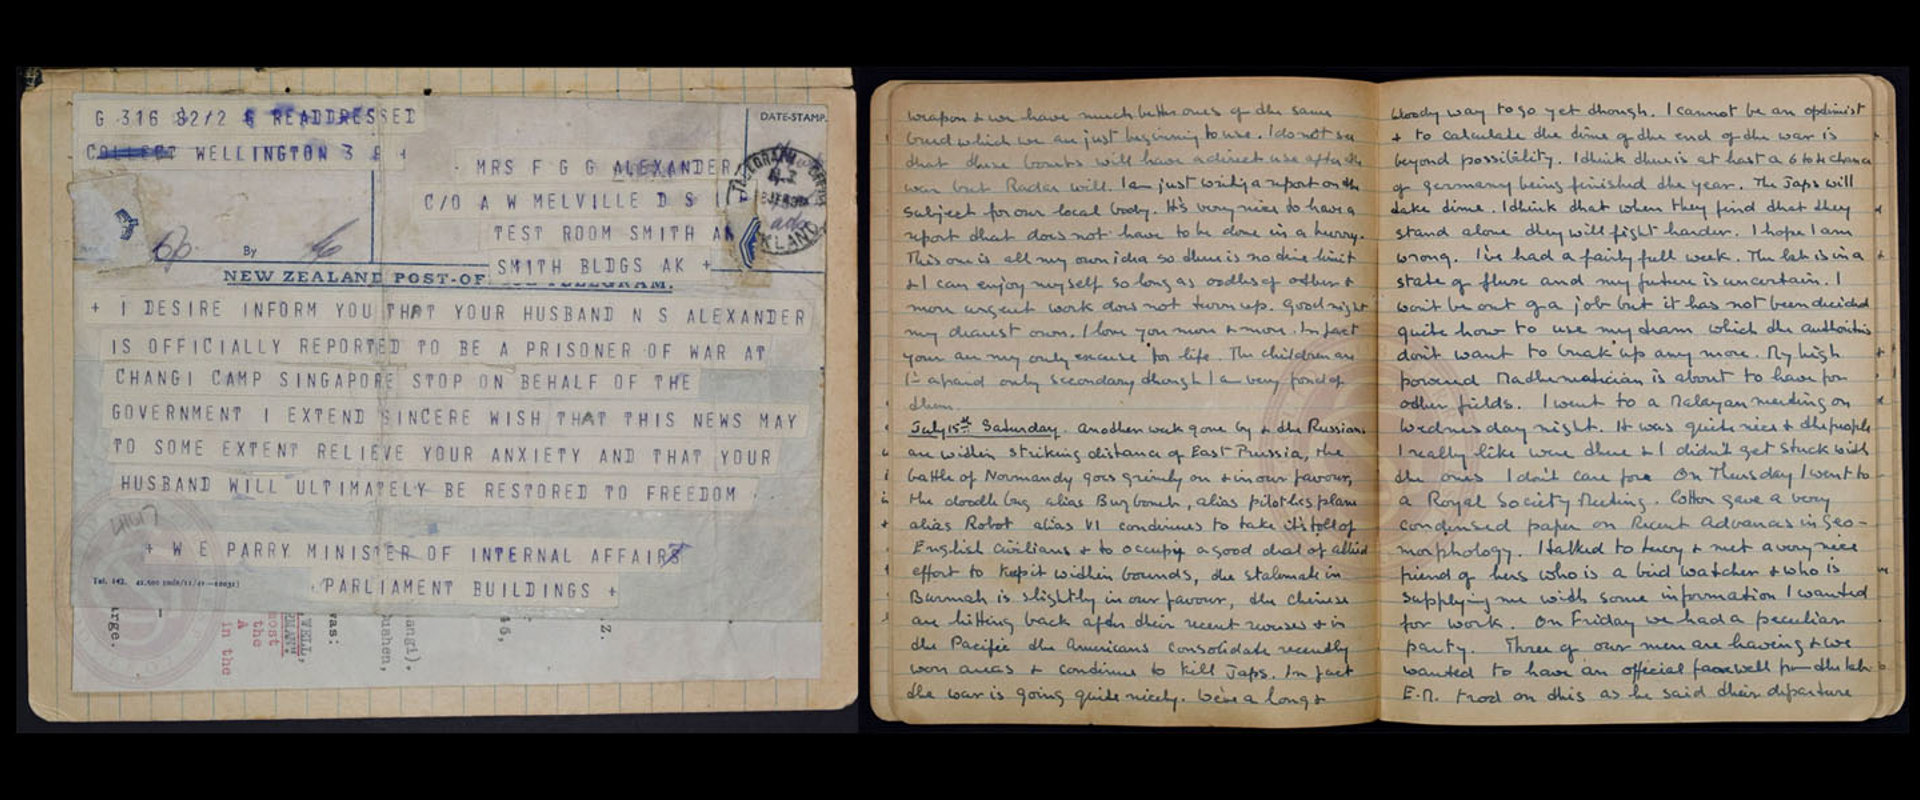 G 316 82/2 READDRESSED
COLLECT WELLINGTON 3
DATE-STAMP.
MRS F G G ALEXANDER
C/O A W MELVILLE D S I
TEST ROOM SMITH AN
SMITH BLDGS AK +
By
NEW ZEALAND POST-OF TELEGRAM.
+ I DESIRE INFORM YOU THAT YOUR HUSBAND N S ALEXANDER
IS OFFICIALLY REPORTED TO BE A PRISONER OF WAR AT
CHANGI CAMP SINGAPORE STOP ON BEHALF OF THE
GOVERNMENT I EXTEND SINCERE WISH THAT THIS NEWS MAY
TO SOME EXTENT RELIEVE YOUR ANXIETY AND THAT YOUR
HUSBAND WILL ULTIMATELY BE RESTORED TO FREEDOM
+ W E PARRY MINISTER OF INTERNAL AFFAIRS
PARLIAMENT BUILDINGS +
Tel. 142.
arge.
in the
A
the
most
WELL,
was:
angi).
ushen,
weapon & we have much better ones of the same
breed which we are just beginning to use. I do not see
that these bombs will have a direct use after the
war but Radar will. I am just writing a report on the
subject for our local body. It's very nice to have a
report that does not have to be done in a hurry.
This one is all my own idea so there is no time limit
& I can enjoy myself so long as oodles of other &
more urgent work does not turn up. Good night
my dearest own. I love you more & more. In fact
your are my only excuse for life. The children are
I'm afraid only secondary though I am very fond of
them
July 15th Saturday. Another week gone by & the Russians
are within striking distance of East Prussia, the
battle of Normandy goes grimly on & in our favour,
the doodle bug alias Buzbomb, alias pilotless plane
alias Robot alias V1 continues to take it's toll of
English civilians & to occupy a good deal of allied
effort to keep it within bounds, the stalemate in
Burmah is slightly in our favour, the Chinese
are hitting back after their recent reverses & in
the Pacific the Americans consolidate recently
won areas & continue to kill Japs. In fact
the war is going quite nicely. We've a long &
bloody way to go yet though. I cannot be an optimist
& to calculate the time of the end of the war is
beyond possibility. I think there is at least a 6 to 4 chance
of Germany being finished the year. The Japs will
take time. I think that when they find that they
stand alone they will fight harder. I hope I am
wrong. I've had a fairly full week. The lab is in a
state of fluxe and my future is uncertain. I
won't be out of a job but it has not been decided
quite how to use my team which the authorities
don't want to break up any more. My high
powered Mathematician is about to leave for
other fields. I went to a Malayan meeting on
Wednesday night. It was quite nice & the people
I really like were there & I didn't get stuck with
the ones I don't care for. On Thursday I went to
a Royal Society Meeting. Cotton gave a very
condensed paper on Recent Advances in Geo-
morphology. I talked to Lucy & met a very nice
friend of hers who is a bird watcher & who is
supplying me with some information I wanted
for work. On Friday we had a peculiar
party. Three of our men are leaving & we
wanted to have an official farewell from the lab
E.M. trod on this as he said their departure